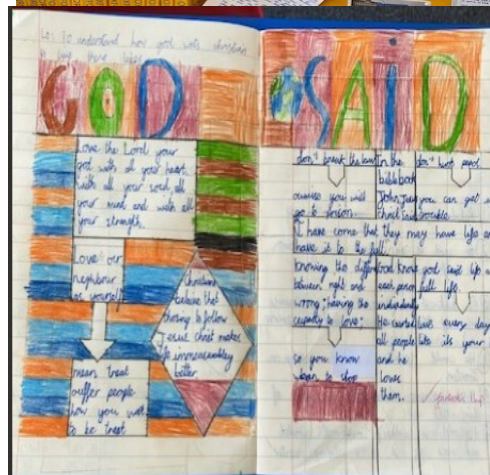 Lo: To understand how god wants christian
to live there lives
GOD
Love the Lord your
god with all your heart
with all your soul all
your mind and with all
your strength.
Love our
neighbour
as yourself
mean treat
ouffer people
how you want
to be treat
Christians
believe that
choosing to follow
Jesus Christ makes
life immeasurably
better.
SAID
don't break the law
ouwise you will
go to prison.
In the
bible book
John, Jesus
christ said
don't hurt peopl
you can get i
trouble
I have come that they may have life an
have it to the full.
Knowing the differen
between right and
wrong; having the
capacity to love;
so you know
when to stop
God knows
each person
individually
He created
all people
and he
loves
them.
god said life a
full life.
live every day
like its your